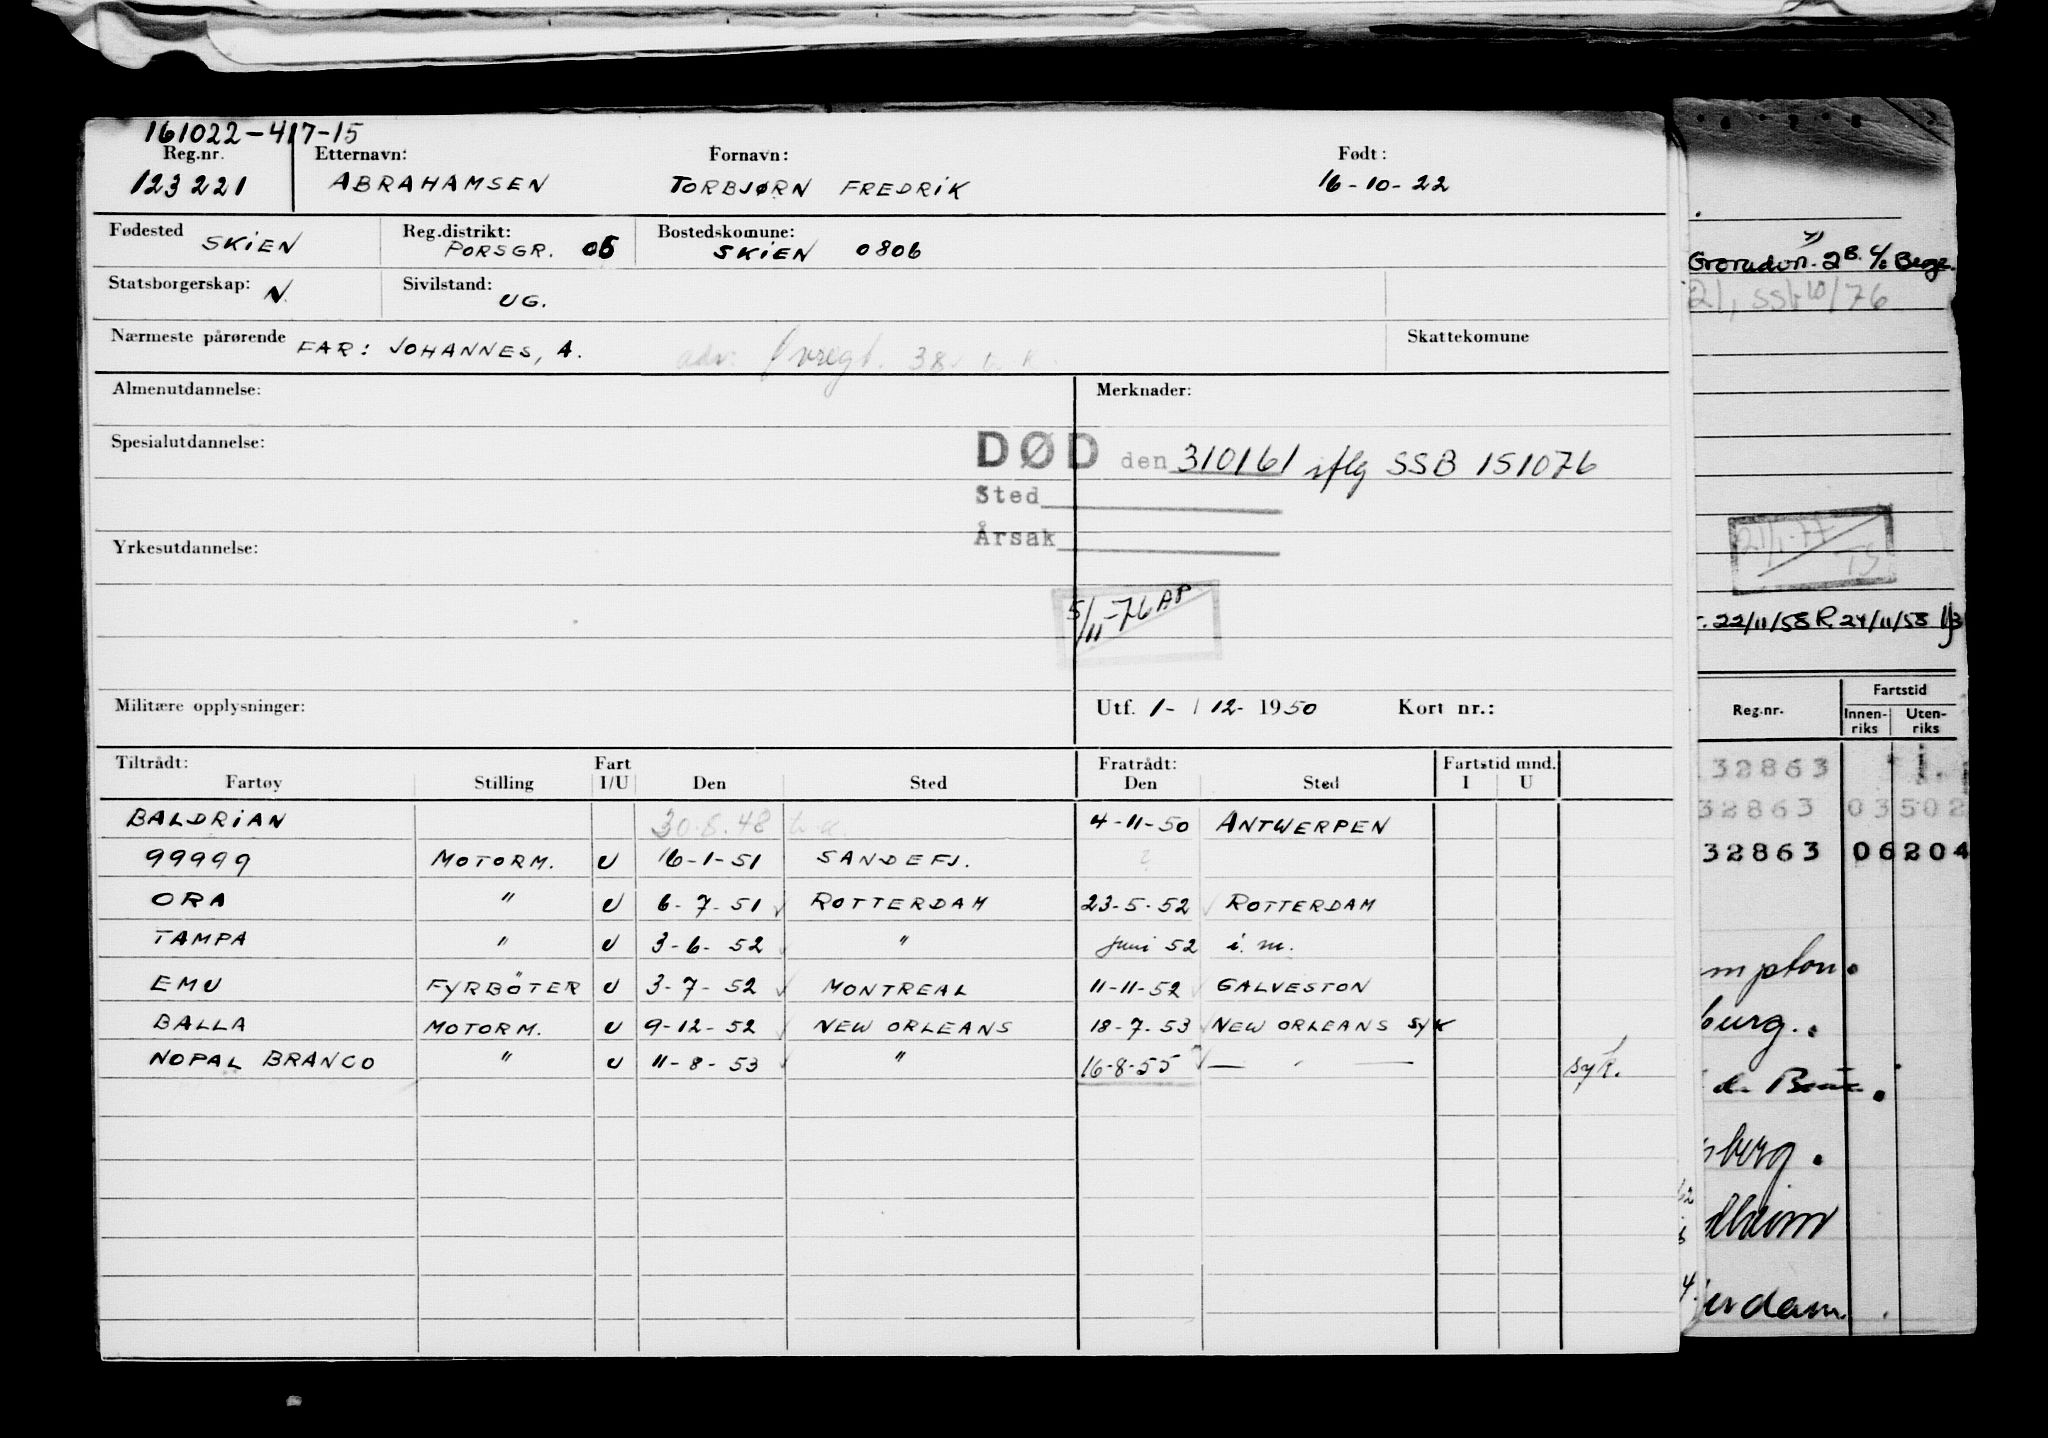 161022-417-15
Reg.nr. Etternavn: Fornavn: Født:
123221 ABRAHAMSEN TORBJØRN FREDRIK 16-10-22
Fødested SKIEN Reg.distrikt: PORSGR. 06 Bostedskomune: SKIEN 0806
Statsborgerskap: N. Sivilstand: UG.
Nærmeste pårørende FAR: JOHANNES, A. adr: 38 Skattekomune
Almenutdannelse: Merknader:
Spesialutdannelse: DØD den 310161 iflg SSB 151076
Sted
Årsak
Yrkesutdannelse:
5/11-76 AP
Militære opplysninger: Utf. 1-/12-1950 Kort nr.:
Tiltrådt: Fart Fratrådt: Fartstid mnd.
Fartøy Stilling I/U Den Sted Den Sted I U
BALDRIAN 30.8.48 4-11-50 ANTWERPEN
99999 MOTORM. U 16-1-51 SANDEFJ. ?
ORA " U 6-7-51 ROTTERDAM 23-5-52 ROTTERDAM
TAMPA " U 3-6-52 " juni 52 i.m.
EMU FYRBÖTER U 3-7-52 MONTREAL 11-11-52 GALVESTON
BALLA MOTORM. U 9-12-52 NEW ORLEANS 18-7-53 NEW ORLEANS SYK
NOPAL BRANCO " U 11-8-53 " 16-8-55 — — syk.
2B. c/o
21, SSB 10/76
21/1-77 TS
22/11/58 R. 24/11/58
Fartstid
Reg.nr. Innen-riks Uten-riks
32863 1.
32863 03502
32863 06204
mpton.
burg.
berg.
dheim
erdam.